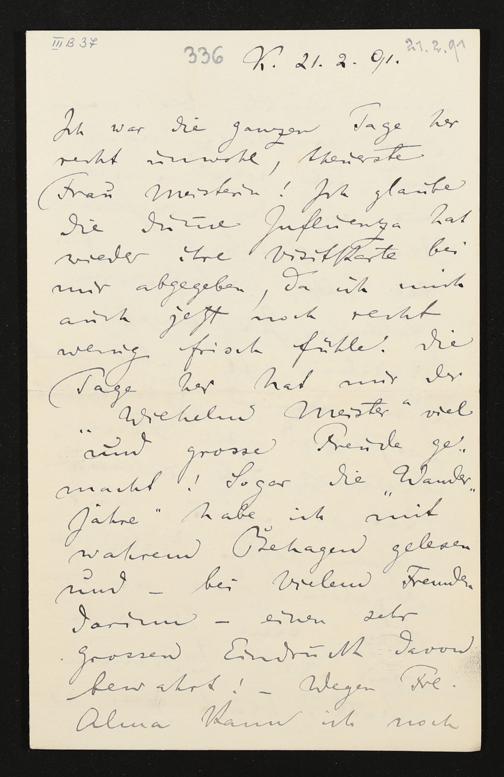 III B 37
336
21.2.91
K. 21. 2. 91.
Ich war die ganzen Tage her
recht unwohl, theuerste
Frau Meisterin! Ich glaube
die dumme Influenza hat
wieder ihre Visitkarte bei
mir abgegeben, da ich mich
auch jetzt noch recht
wenig frisch fühle. Die
Tage her hat mir der
„Wilhelm Meister“ viel
und grosse Freude ge-
macht! Sogar die „Wander-
jahre“ habe ich mit
wahrem Behagen gelesen
und – bei vielem Fremden
darinn – einen sehr
grossen Eindruck davon
bewahrt! – Wegen Frl.
Alma kann ich noch